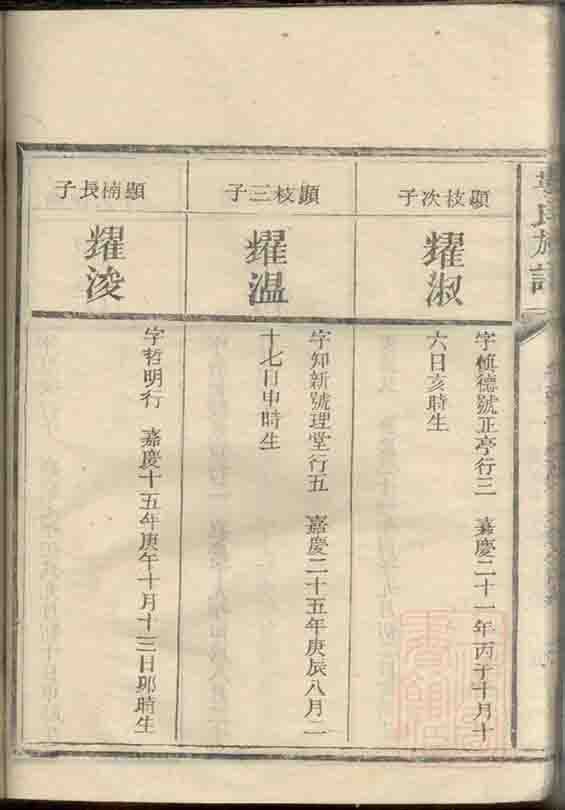 氏族譜
顯枝次子
耀淑
字槙德號正亭行三　嘉慶二十一年丙子十月十
六日亥時生
顯枝三子
耀温
字知新號理堂行五　嘉慶二十五年庚辰八月二
十七日申時生
顯楠長子
耀淩
字哲明行　嘉慶十五年庚午十月十三日卯時生